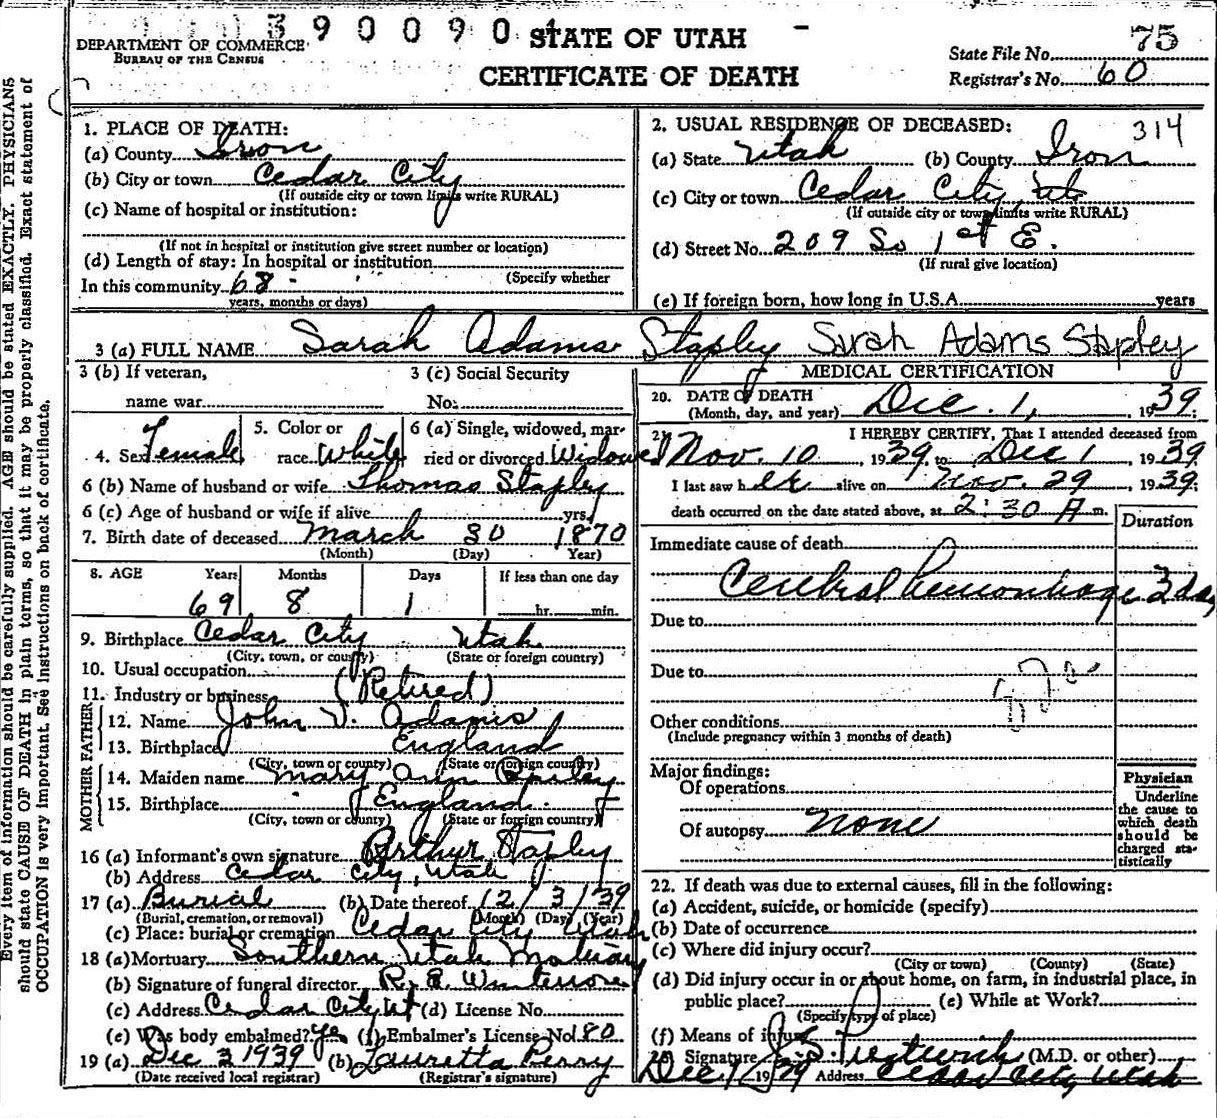 390090
STATE OF UTAH
CERTIFICATE OF DEATH
DEPARTMENT OF COMMERCE
BUREAU OF THE CENSUS
State File No. 75
Registrar's No. 60
Every item of information should be carefully supplied. AGE should be stated EXACTLY. PHYSICIANS
should state CAUSE OF DEATH in plain terms, so that it may be properly classified. Exact statement of
OCCUPATION is very important. See instructions on back of certificate.
1. PLACE OF DEATH:
(a) County Iron
(b) City or town Cedar City
(If outside city or town limits write RURAL)
(c) Name of hospital or institution:
(If not in hospital or institution give street number or location)
(d) Length of stay: In hospital or institution
(Specify whether
In this community 68
years, months or days)
2. USUAL RESIDENCE OF DECEASED: 314
(a) State Utah (b) County Iron
(c) City or town Cedar City, Ut
(If outside city or town limits write RURAL)
(d) Street No. 209 So 1st E.
(If rural give location)
(e) If foreign born, how long in U.S.A. years
3 (a) FULL NAME Sarah Adams Stapley Sarah Adams Stapley
3 (b) If veteran,
name war
3 (c) Social Security
No.
4. Sex Female
5. Color or
race White
6 (a) Single, widowed, mar-
ried or divorced Widowed
6 (b) Name of husband or wife Thomas Stapley
6 (c) Age of husband or wife if alive yrs.
7. Birth date of deceased March 30 1870
(Month) (Day) Year)
8. AGE Years Months Days If less than one day
69 8 1 hr. min.
9. Birthplace Cedar City Utah
(City, town, or county) (State or foreign country)
10. Usual occupation
11. Industry or business (Retired)
FATHER
12. Name John V. Adams
13. Birthplace England
(City, town or county) (State or foreign country)
MOTHER
14. Maiden name Mary Ann
15. Birthplace England
(City, town or county) (State or foreign country)
16 (a) Informant's own signature Arthur Stapley
(b) Address Cedar City, Utah
17 (a) Burial (b) Date thereof 12/3/39
(Burial, cremation, or removal) (Month) (Day) (Year)
(c) Place: burial or cremation Cedar City Utah
18 (a) Mortuary Southern Utah Mortuary
(b) Signature of funeral director R. E.
(c) Address Cedar City Ut (d) License No.
(e) Was body embalmed? Yes (f) Embalmer's License No. 180
19 (a) Dec 3 1939 (b) Lauretta Perry
(Date received local registrar) (Registrar's signature)
MEDICAL CERTIFICATION
20. DATE OF DEATH
(Month, day, and year) Dec. 1, 1939;
21. I HEREBY CERTIFY, That I attended deceased from
Nov. 10, 1939, to Dec 1, 1939
I last saw her alive on Nov. 29, 1939;
death occurred on the date stated above, at 2:30 A m.
Duration
Immediate cause of death
Cerebral Hemorrhage 3 day
Due to
Due to
Other conditions
(Include pregnancy within 3 months of death)
Major findings:
Of operations
Of autopsy none
Physician
Underline
the cause to
which death
should be
charged sta-
tistically
22. If death was due to external causes, fill in the following:
(a) Accident, suicide, or homicide (specify)
(b) Date of occurrence
(c) Where did injury occur?
(City or town) (County) (State)
(d) Did injury occur in or about home, on farm, in industrial place, in
public place? (e) While at Work?
(Specify type of place)
(f) Means of injury
Signature (M.D. or other)
Dec 1/1939 Address Cedar City, Utah